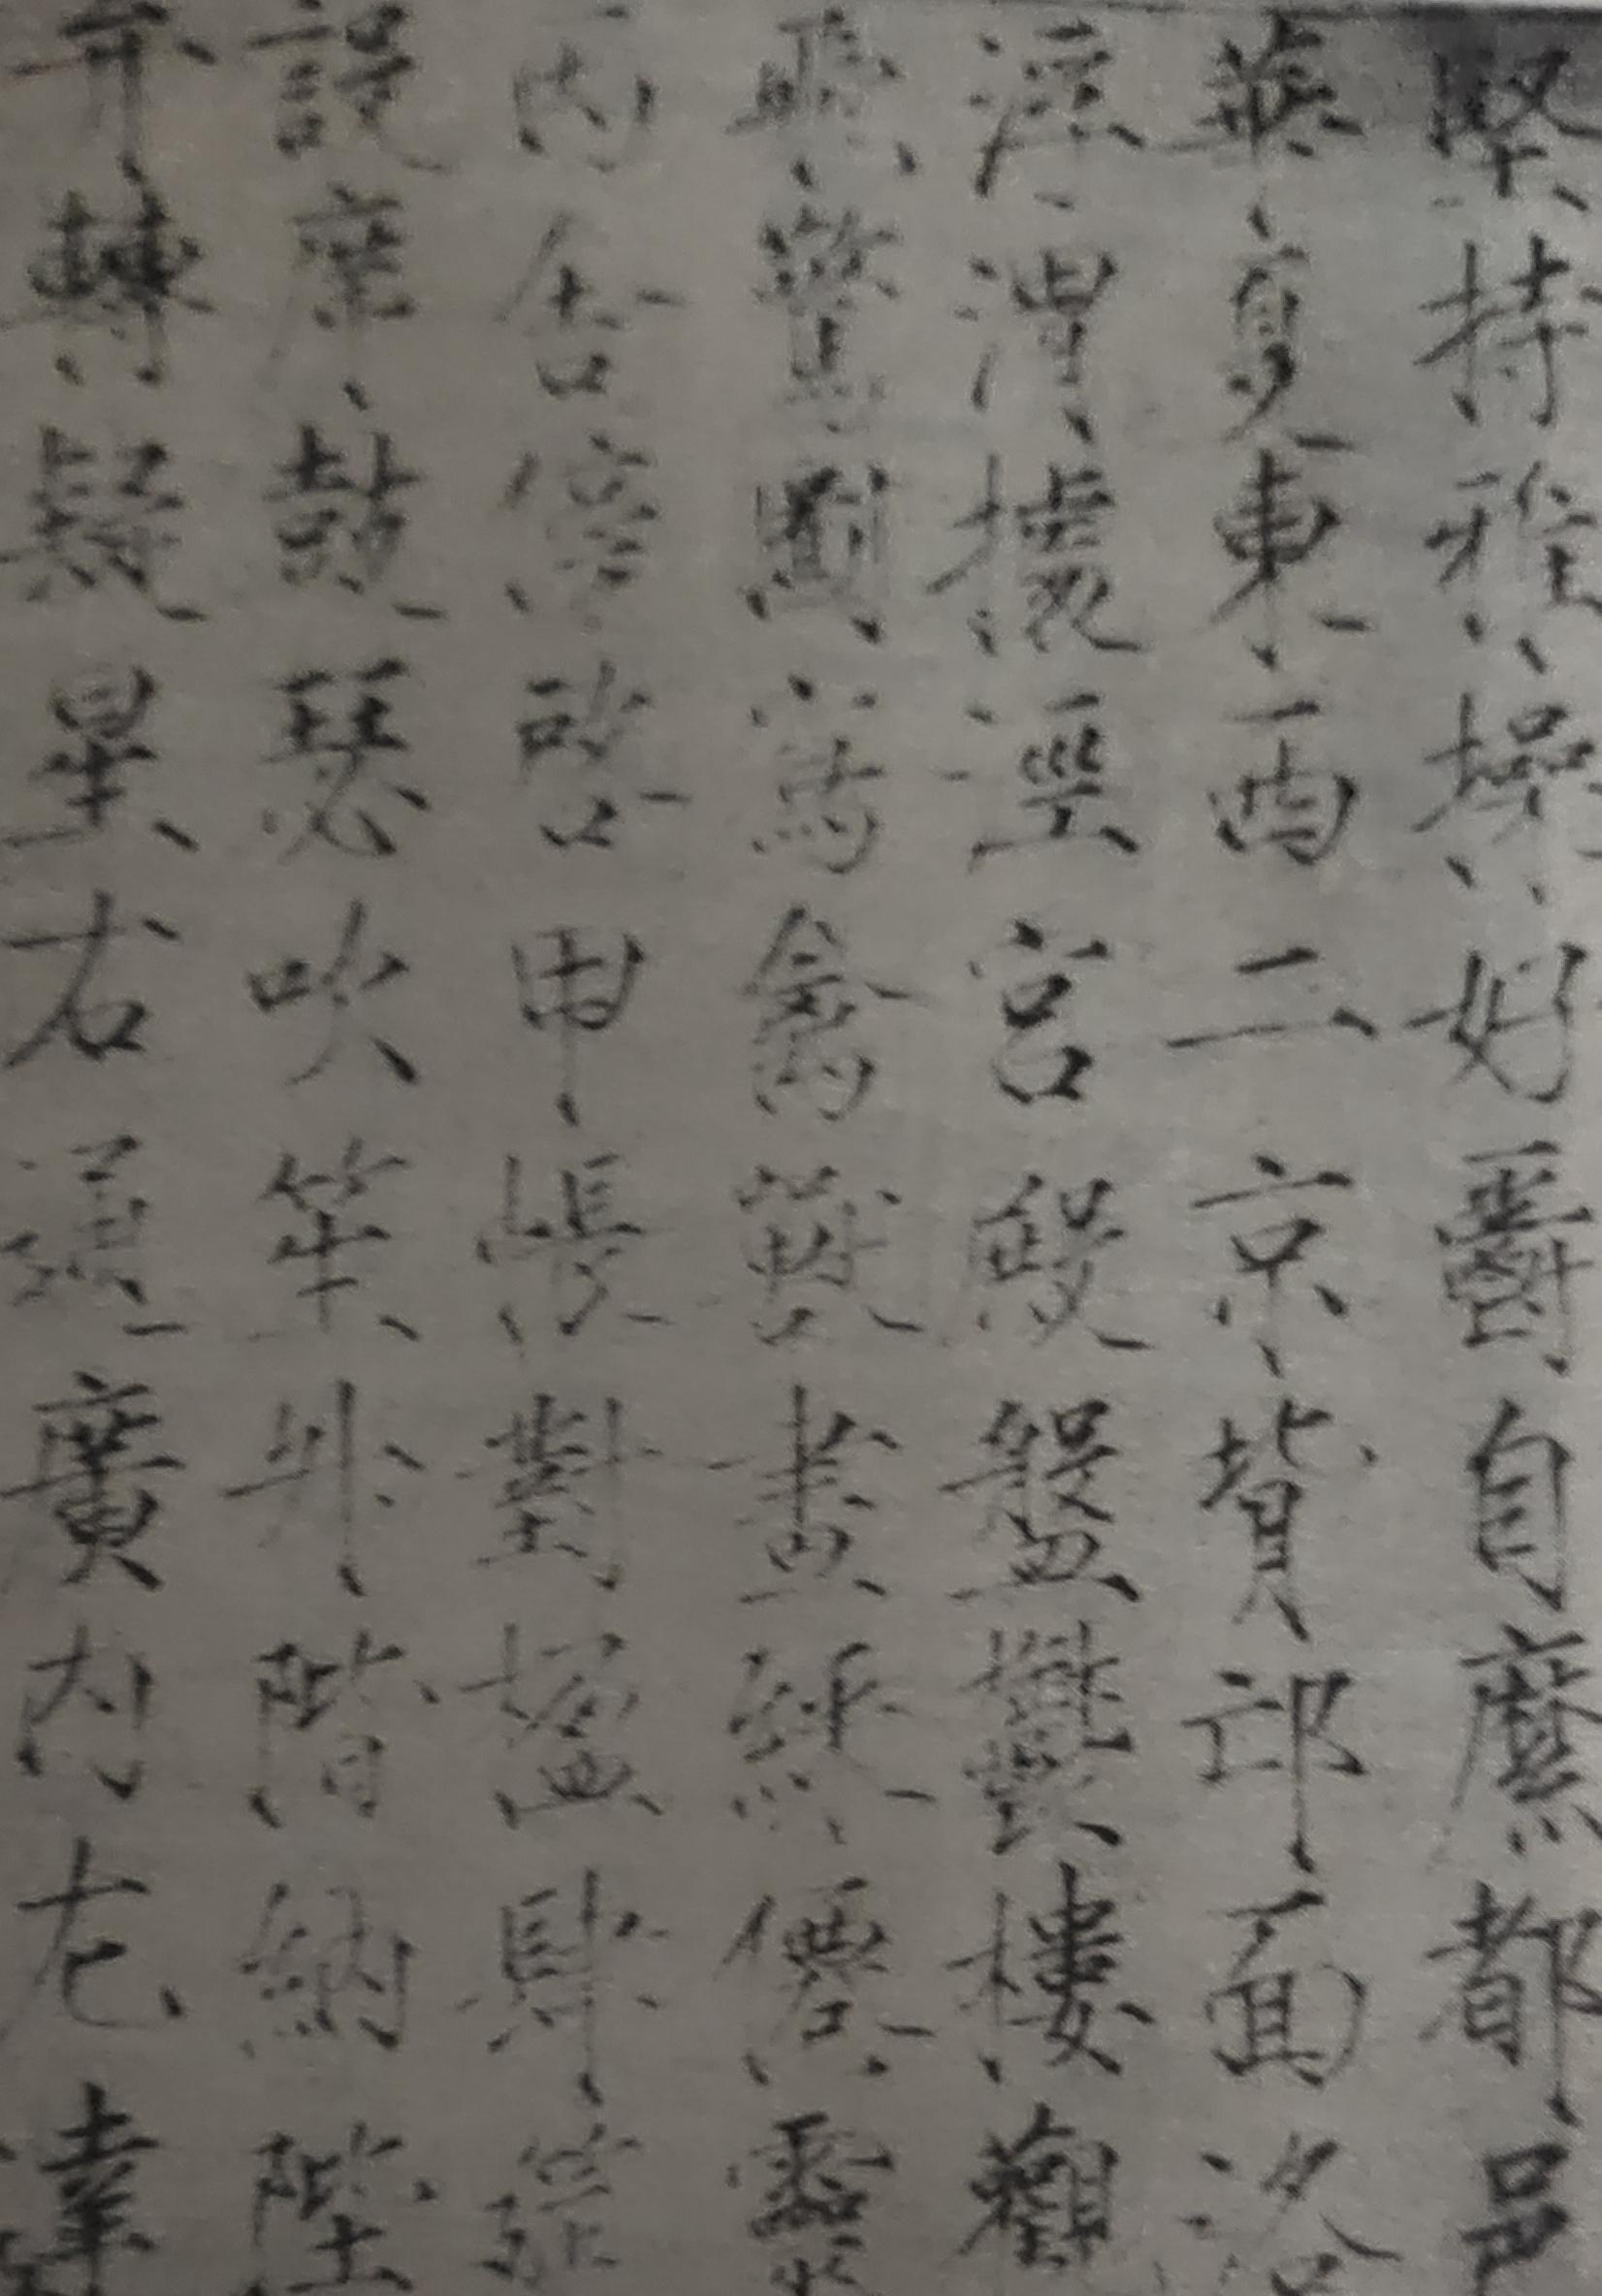 堅持雅操好爵自縻都邑
華夏東西二京背邙面洛
浮渭據涇宮殿盤鬱樓觀
飛驚圖寫禽獸畫綵僊靈
丙舍傍啓甲帳對楹肆筵
設席鼓瑟吹笙升階納陛
弁轉疑星右通廣内左達